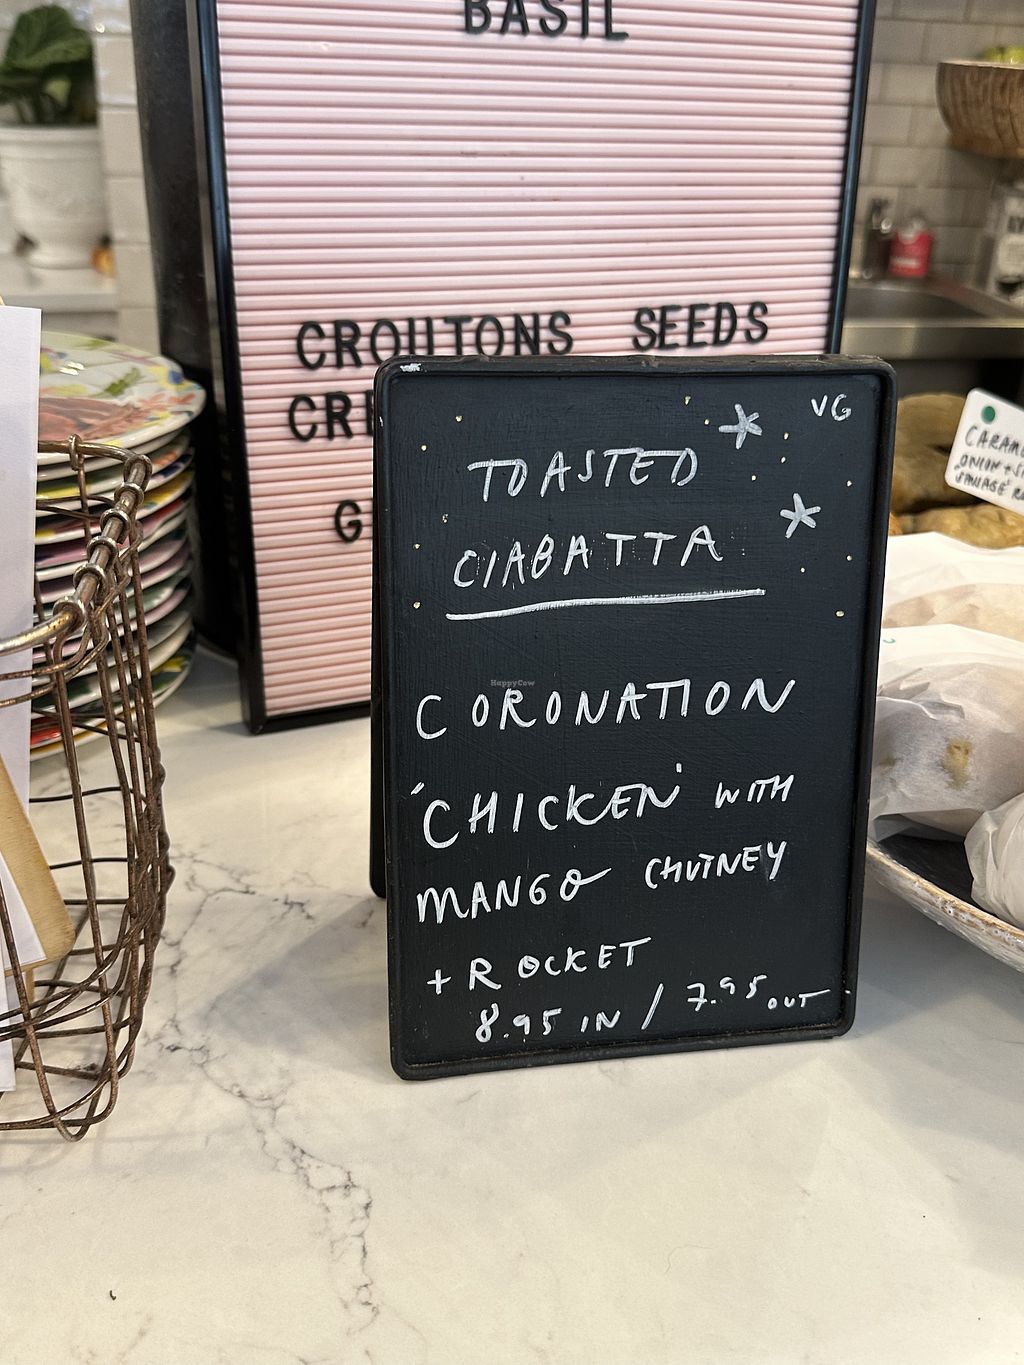 BASIL
CROUTONS SEEDS
CR
G
VG
TOASTED
CIABATTA
CORONATION
'CHICKEN' WITH
MANGO CHUTNEY
+ ROCKET
8.95 IN / 7.95 OUT
CARAM
ONION + S
SAUSAGE R
HappyCow